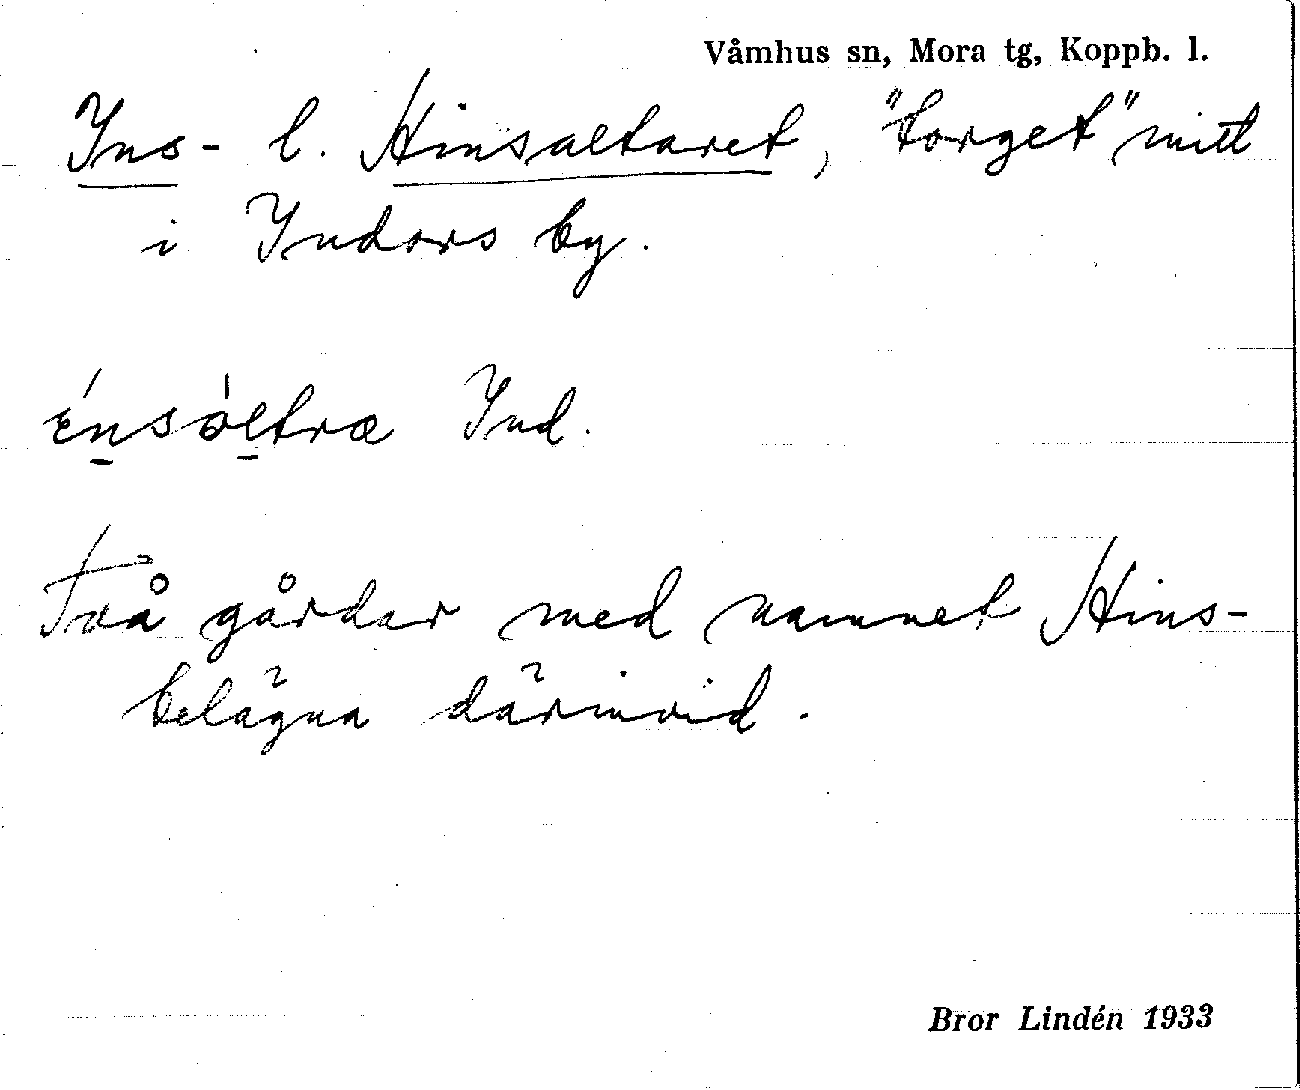 Våmhus sn, Mora tg, Koppb. l.
Ins- l. Hinsaltaret, "torget" mitt
i Indors by.
énsòltræ Ind.
Två gårdar med namnet Hins-
belägna därinvid.
Bror Lindén 1933